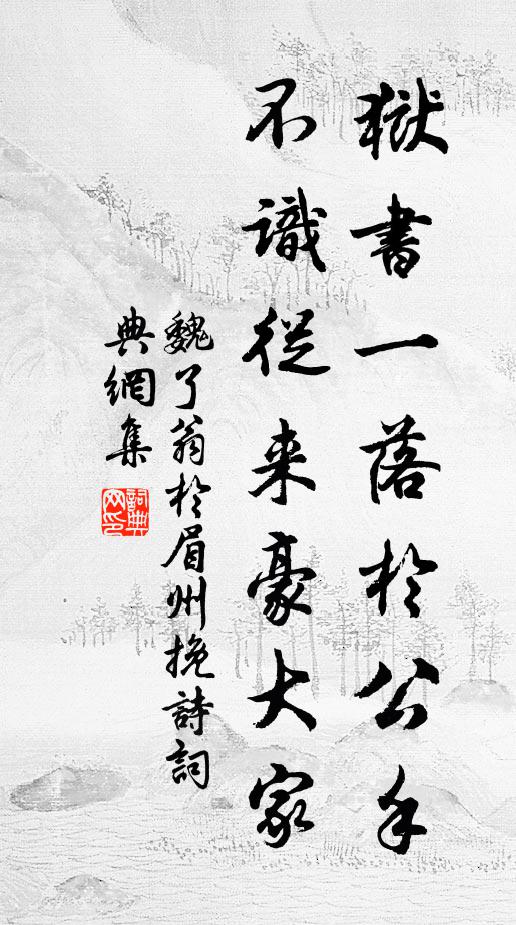 獄書一落於公手
不識從来豪大家
魏了翁於眉州挽詩詞
典網集
詞典網印